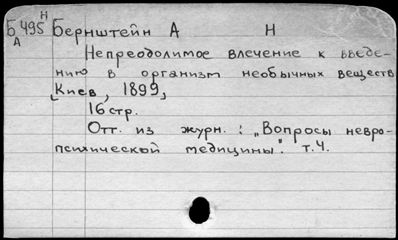 Н
Б495 Бернштейн А Н
А
Непреодолимое влечение к введе-
нию в организм необычных веществ
[Киев, 1899]
16 стр.
Отт. из журн.: "Вопросы невро-
психической медицины". т.4.